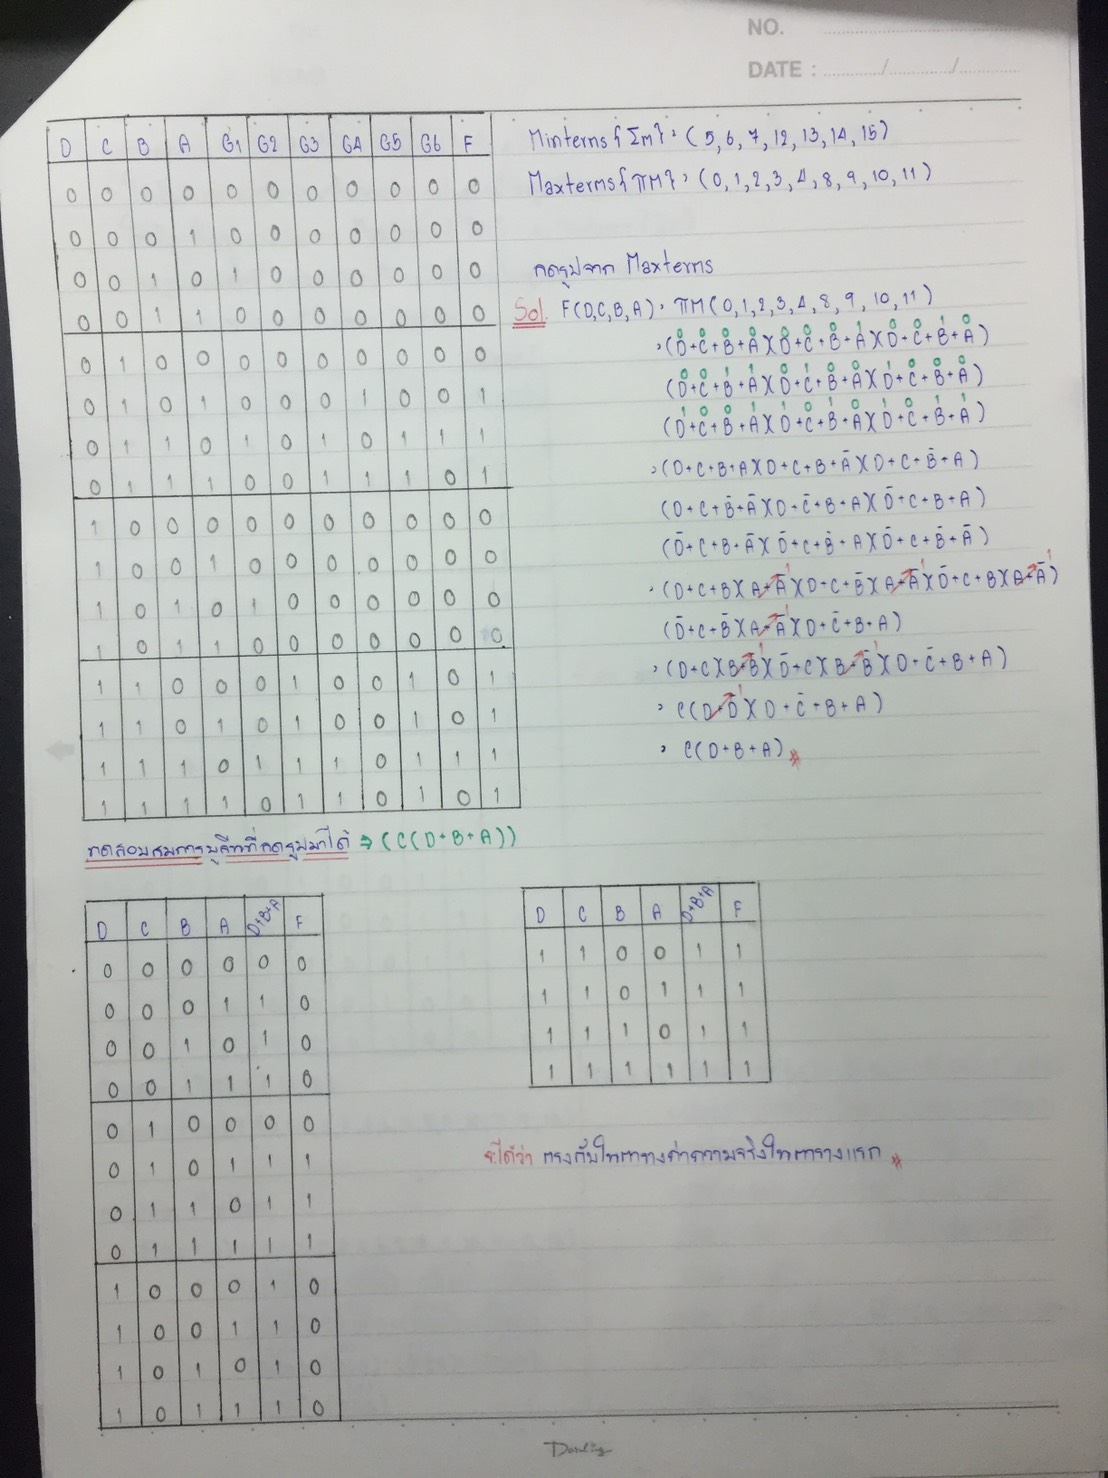 NO.
DATE : / /
D C B A G1 G2 G3 G4 G5 G6 F
0 0 0 0 0 0 0 0 0 0 0
0 0 0 1 0 0 0 0 0 0 0
0 0 1 0 1 0 0 0 0 0 0
0 0 1 1 0 0 0 0 0 0 0
0 1 0 0 0 0 0 0 0 0 0
0 1 0 1 0 0 0 1 0 0 1
0 1 1 0 1 0 1 0 1 1 1
0 1 1 1 0 0 1 1 1 0 1
1 0 0 0 0 0 0 0 0 0 0
1 0 0 1 0 0 0 0 0 0 0
1 0 1 0 1 0 0 0 0 0 0
1 0 1 1 0 0 0 0 0 0 0
1 1 0 0 0 1 0 0 1 0 1
1 1 0 1 0 1 0 0 1 0 1
1 1 1 0 1 1 1 0 1 1 1
1 1 1 1 0 1 1 0 1 0 1
Minterms {Σm} = (5, 6, 7, 12, 13, 14, 15)
Maxterms {πM} = (0, 1, 2, 3, 4, 8, 9, 10, 11)
ลดรูปจาก Maxterms
Sol. F(D,C,B,A) = πM(0, 1, 2, 3, 4, 8, 9, 10, 11)
0 0 0 0 0 0 0 1 0 0 1 0
= (D+C+B+A)(D+C+B+A)(D+C+B+A)
0 0 1 1 0 1 0 0 1 0 0 0
(D+C+B+A)(D+C+B+A)(D+C+B+A)
1 0 0 1 1 0 1 0 1 0 1 1
(D+C+B+A)(D+C+B+A)(D+C+B+A)
= (D+C+B+A)(D+C+B+Ā)(D+C+B̄+A)
(D+C+B̄+Ā)(D+C̄+B+A)(D̄+C+B+A)
(D̄+C+B+Ā)(D̄+C+B̄+A)(D̄+C+B̄+Ā)
= (D+C+B)(A+Ā)¹(D+C+B̄)(A+Ā)¹(D̄+C+B)(A+Ā)¹
(D̄+C+B̄)(A+Ā)¹(D+C̄+B+A)
= (D+C)(B+B̄)¹(D̄+C)(B+B̄)¹(D+C̄+B+A)
= C(D+D̄)¹(D+C̄+B+A)
= C(D+B+A) *
ทดสอบสมการบูลีนที่ลดรูปมาได้ ⇒ (C(D+B+A))
D C B A D+B+A F
0 0 0 0 0 0
0 0 0 1 1 0
0 0 1 0 1 0
0 0 1 1 1 0
0 1 0 0 0 0
0 1 0 1 1 1
0 1 1 0 1 1
0 1 1 1 1 1
1 0 0 0 1 0
1 0 0 1 1 0
1 0 1 0 1 0
1 0 1 1 1 0
D C B A D+B+A F
1 1 0 0 1 1
1 1 0 1 1 1
1 1 1 0 1 1
1 1 1 1 1 1
จะได้ว่า ตรงกับในตารางค่าความจริงในตารางแรก *